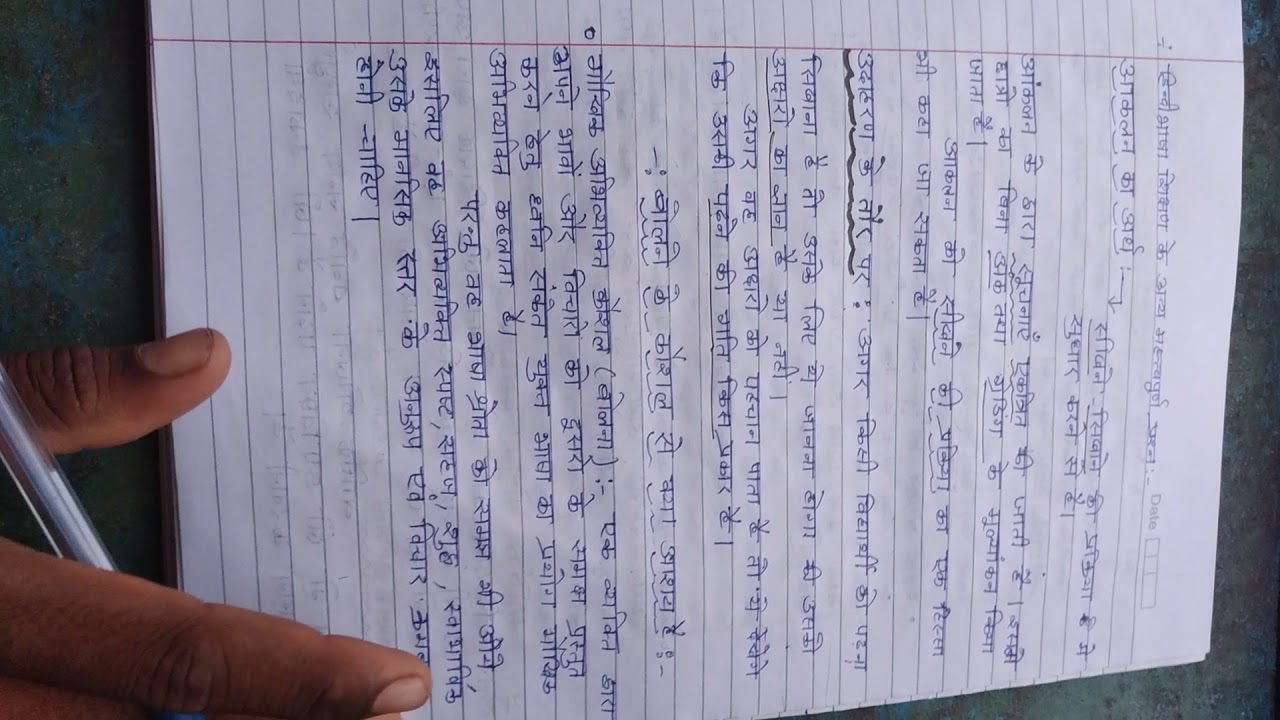 -: हिन्दी भाषा शिक्षण के अन्य महत्वपूर्ण प्रश्न :- Date
आकलन का अर्थ :→ सीखने सिखाने की प्रक्रिया में
सुधार करने से है।
आंकलन के द्वारा सूचनाएँ एकत्रित की जाती हैं। इसमें
छात्रो का बिना अंक तथा ग्रेडिंग के मुल्यांकन किया
जाता है।
आकलन को सीखने की प्रक्रिया का एक हिस्सा
भी कहा जा सकता है।
उदाहरण के तौर पर : अगर किसी विद्यार्थी को पढ़ना
सिखाना है तो उसके लिए ये जानना होगा की उसको
अक्षरो का ज्ञान है या नहीं।
अगर वह अक्षरो को पहचान पाता है तो ये देखेंगे
कि उसकी पढ़ने की गति किस प्रकार है।
-: बोलने के कौशल से क्या आशय है :-
• मौखिक अभिव्यक्ति कौशल (बोलना) :- एक व्यक्ति द्वारा
अपने भावों और विचारों को दुसरो के समक्ष प्रस्तुत
करने हेतु ध्वनि संकेत युक्त भाषा का प्रयोग मौखिक
अभिव्यक्ति कहलाता है।
परन्तु वह भाषा श्रोता को समझ भी आये
इसलिए वह अभिव्यक्ति स्पष्ट, सरल, शुद्ध, स्वाभाविक
उसके मानसिक स्तर के अनुरूप एवं विचार
होनी चाहिए।